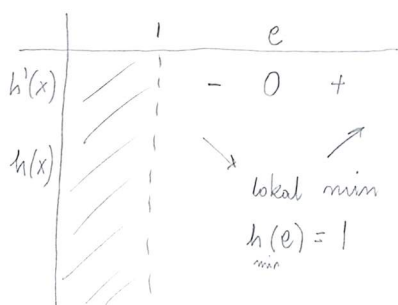 1 e
h'(x) - 0 +
h(x) ↘ ↗
lokal min
h(e) = 1
min